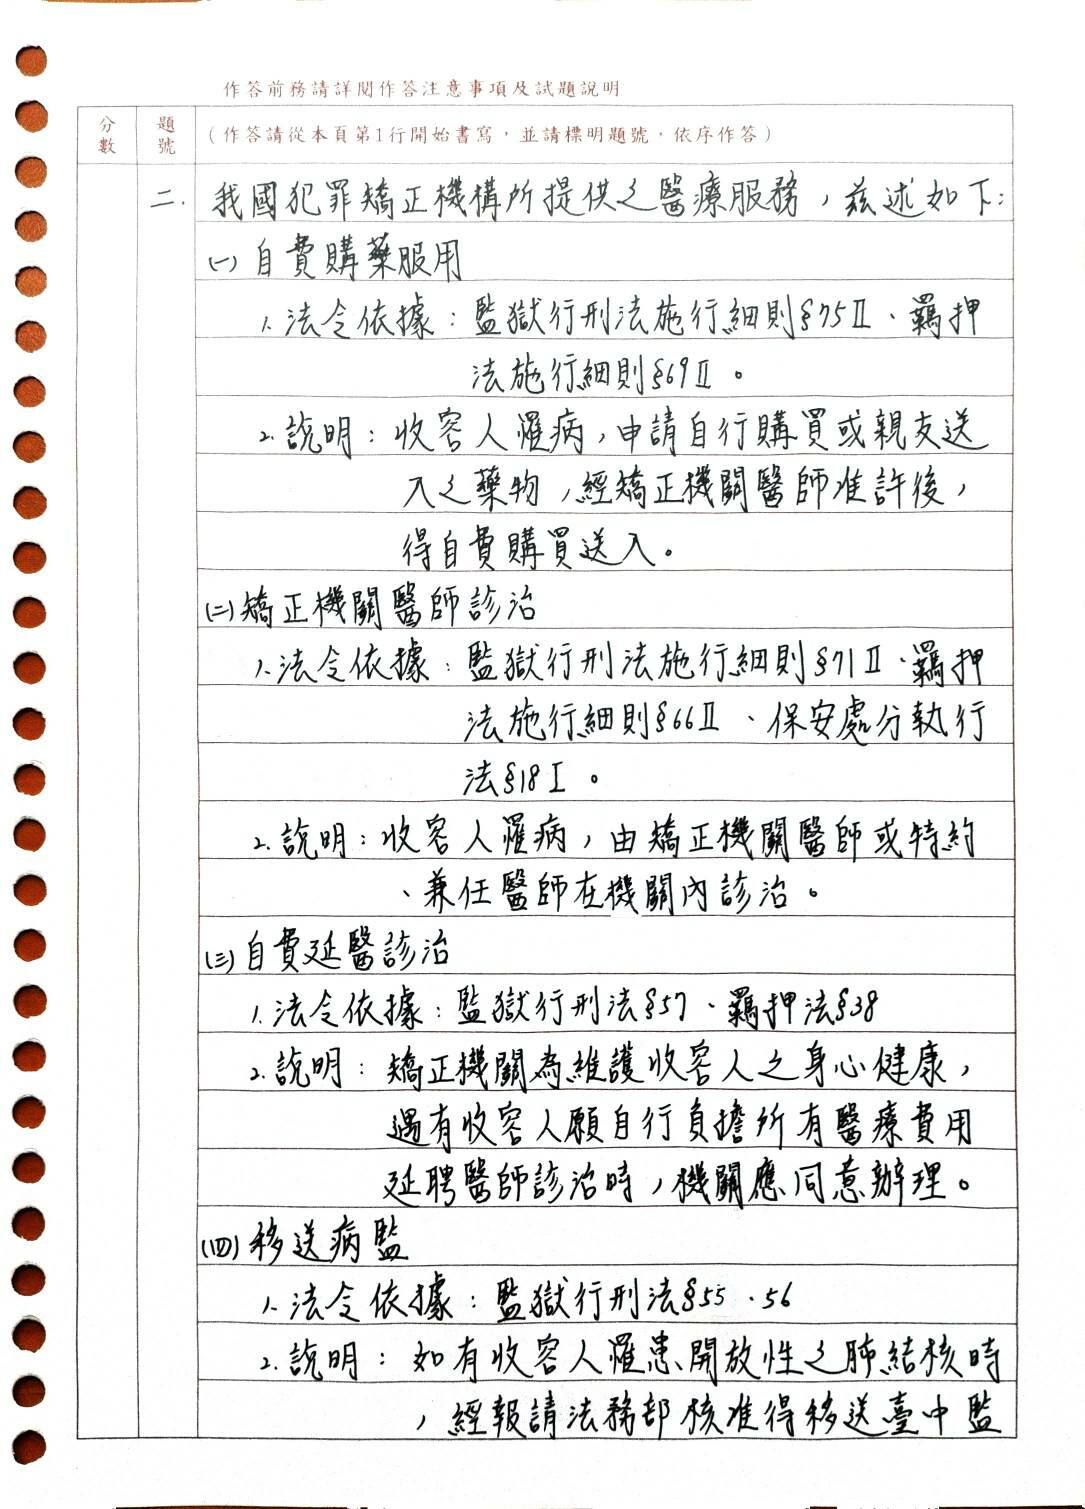 作答前務請詳閱作答注意事項及試題說明
分數
題號
(作答請從本頁第1行開始書寫，並請標明題號，依序作答)
二. 我國犯罪矯正機構所提供之醫療服務，茲述如下:
(一)自費購藥服用
1.法令依據:監獄行刑法施行細則§75Ⅱ、羈押
法施行細則§69Ⅱ。
2.說明:收容人罹病，申請自行購買或親友送
入之藥物，經矯正機關醫師准許後，
得自費購買送入。
(二)矯正機關醫師診治
1.法令依據:監獄行刑法施行細則§71Ⅱ、羈押
法施行細則§66Ⅱ、保安處分執行
法§18Ⅰ。
2.說明:收容人罹病，由矯正機關醫師或特約
、兼任醫師在機關內診治。
(三)自費延醫診治
1.法令依據:監獄行刑法§57、羈押法§38
2.說明:矯正機關為維護收容人之身心健康，
遇有收容人願自行負擔所有醫療費用
延聘醫師診治時，機關應同意辦理。
(四)移送病監
1.法令依據:監獄行刑法§55、56
2.說明:如有收容人罹患開放性之肺結核時
，經報請法務部核准得移送臺中監